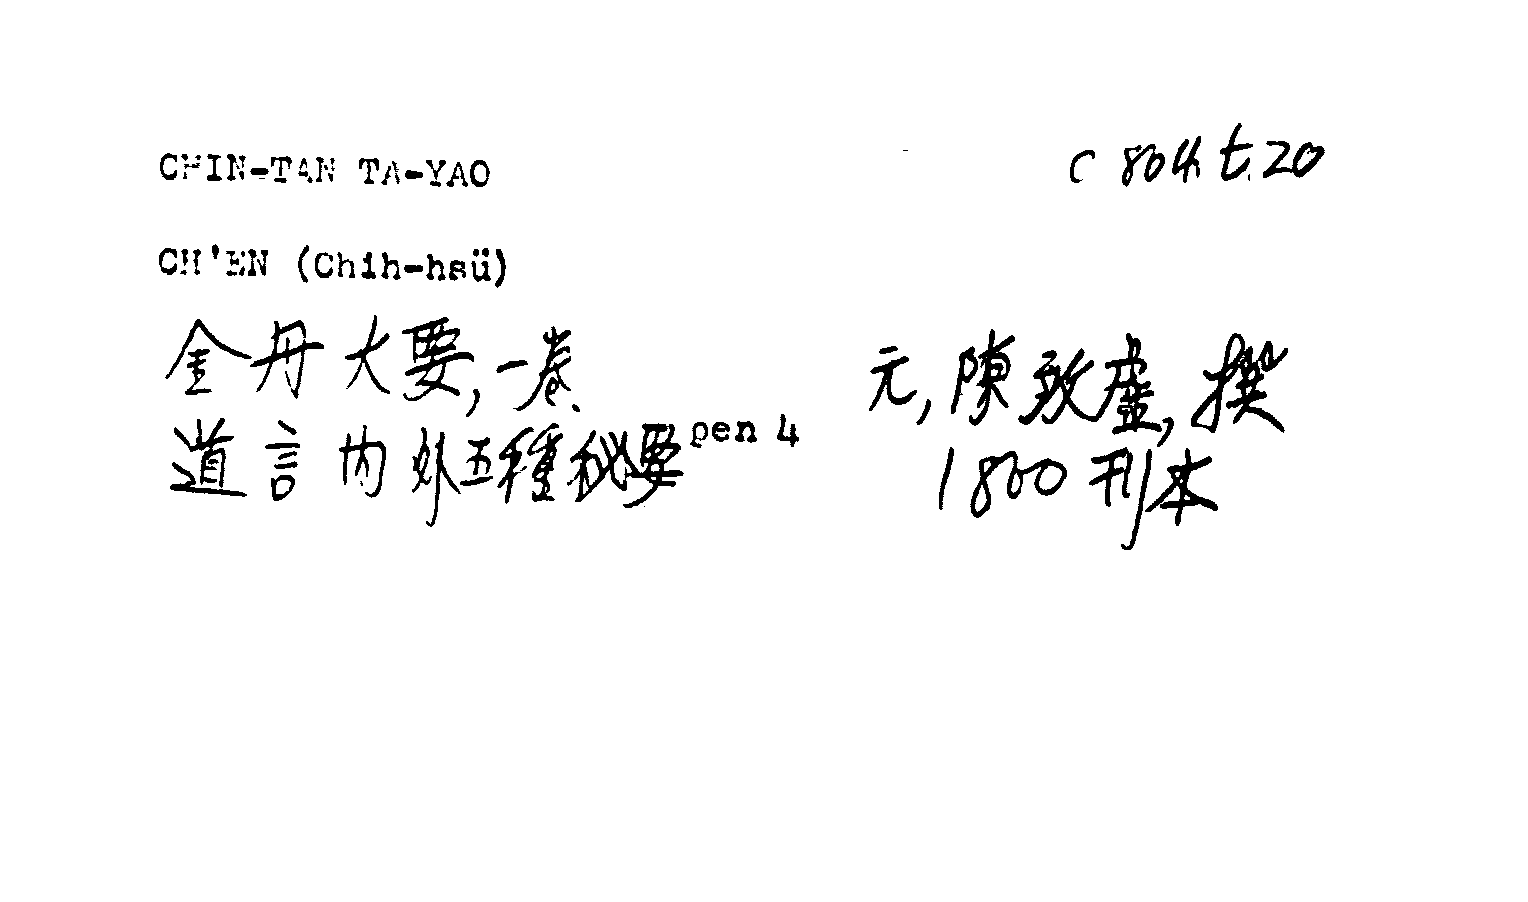 CHIN-TAN TA-YAO
C 804 t.20
CH'EN (Chih-hsü)
金丹大要,一卷、
元,陳致虛,撰
道言内外五種秘要 pen 4
1800刊本